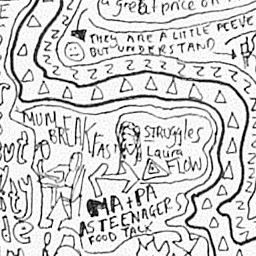 a great price on
THEY ARE A LITTLE PEEVE
BUT UNDERSTAND
MUM
BREAKFAST
STRUGGLES
Laura
FLOW
out
MA + PA
AS TEENAGERS
FOOD TALK